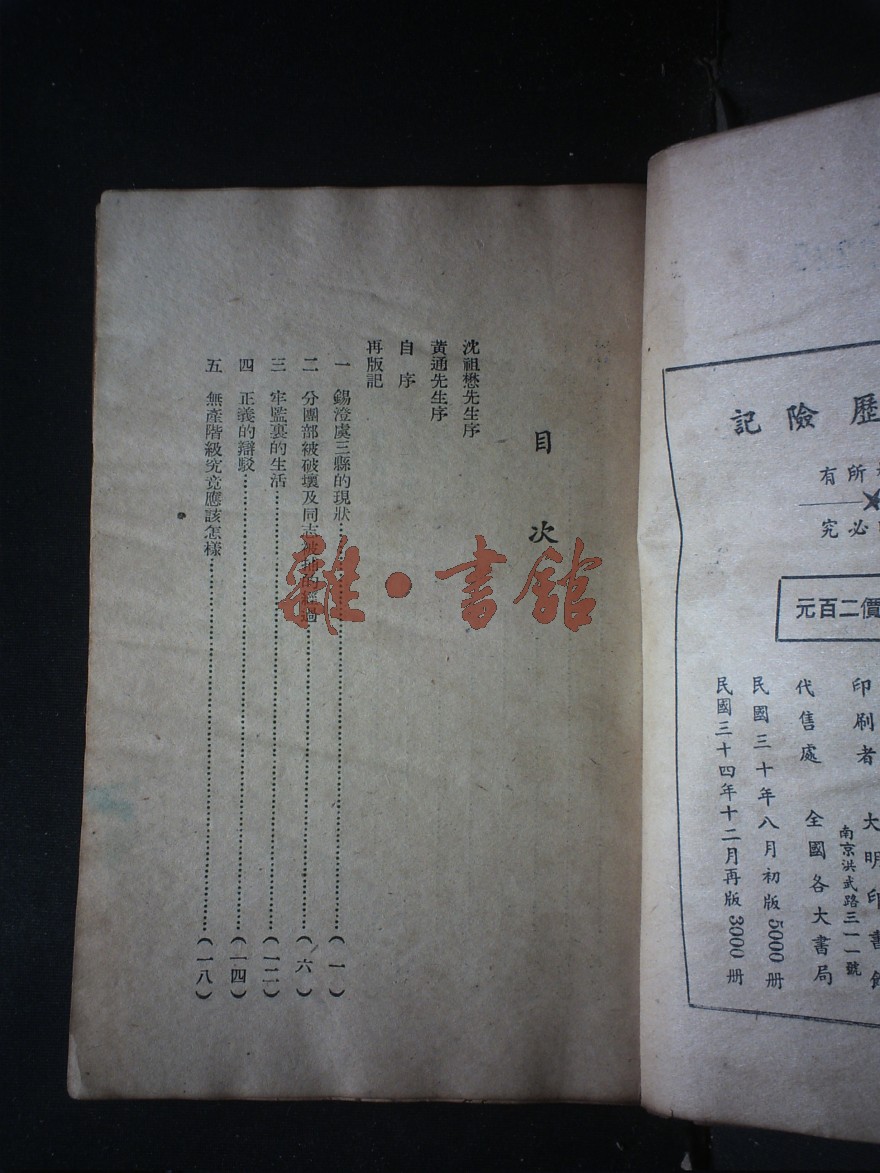 歷險記
所有
必究
價二百元
印刷者 大明印書
南京洪武路三一一號
代售處 全國各大書局
民國三十年八月初版5000册
民國三十四年十二月再版3000册
目次
沈祖懋先生序
黃通先生序
自序
再版記
一 錫澄虞三縣的現狀…………(一)
二 分團部被破壞及同志被捕的經過…………(六)
三 牢監裏的生活…………(一二)
四 正義的辯駁…………(一四)
五 無產階級究竟應該怎樣…………(一八)
雜·書館